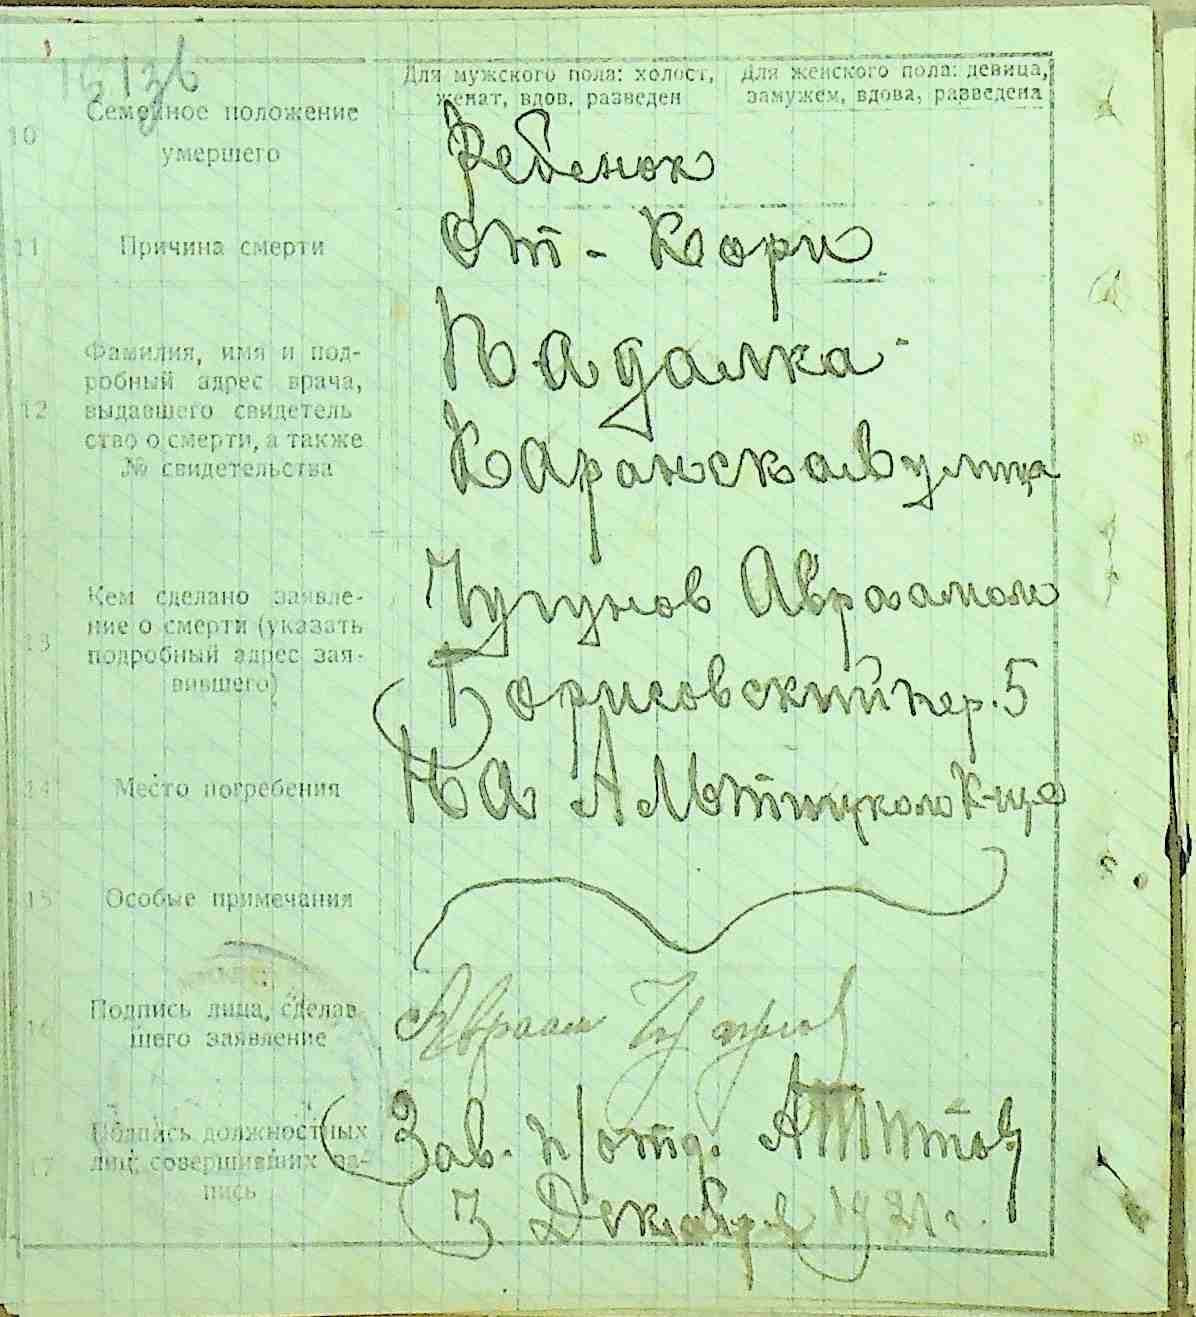 Для мужского пола: холост, женат, вдов, разведен
Для женского пола: девица, замужем, вдова, разведена
10 Семейное положение умершего
Ребенок
11 Причина смерти
От - Кори
12 Фамилия, имя и под-
робный адрес врача,
выдавшего свидетель
ство о смерти, а также
№ свидетельства
Падалка
Каранская улица
13 Кем сделано заявле-
ние о смерти (указать
подробный адрес зая-
вившего)
Чугунов Авраамом
Борисовский пер. 5
14 Место погребения
На К-ще
15 Особые примечания
16 Подпись лица, сделав
шего заявление
Авраам Чугунов
17 Подпись должностных
лиц, совершивших за-
пись
Зав. п/отд.
3 Декабря 1921 г.